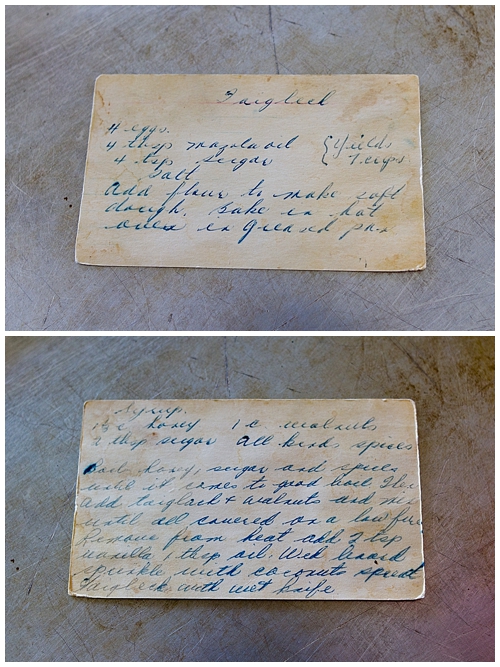 Taiglech
4 eggs.
4 tbsp mazola oil
4 tsp sugar
{ Yields 7 cups
Salt
Add flour to make soft
dough. Bake in hot
oven in greased pan
Syrup.
1½ c honey 1 c walnuts
2 tbsp sugar All kinds spices
Boil honey, sugar and spices
until it comes to good boil then
add taiglach + walnuts and mi
until all covered on a low fire
Remove from heat add 2 tsp
vanilla 1 tbsp oil. Wet board
sprinkle with coconuts spread
taiglech with wet knife